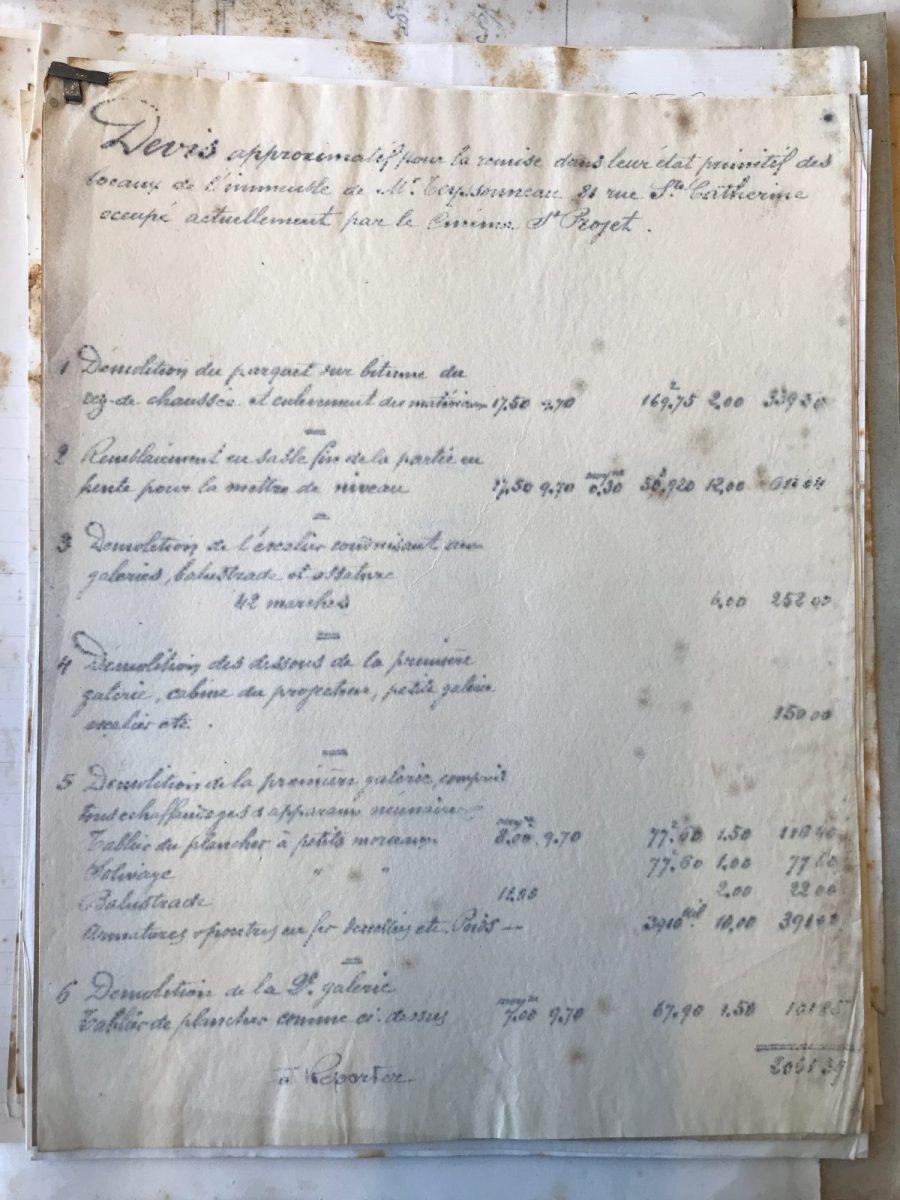 Devis approximatif pour la remise dans leur état primitif des
locaux de l'immeuble de Mr Teyssonneau 81 rue Ste Catherine
occupé actuellement par le cinéma St Projet.
1 Démolition du parquet sur bitume du
rez-de chaussée et enlèvement des matériaux 17.50 9.70 169.75 2.00 339 50
2 Remblaiement en sable fin de la partie en
pente pour la mettre de niveau 17.50 9.70 moyne 0.30 50,920 12.00 611 04
3 Démolition de l'escalier conduisant aux
galeries, balustrade et ossature
42 marches 6.00 252 00
4 Démolition des dessous de la première
galerie, cabine du projecteur, petite galerie
escalier etc. 150 00
5 Démolition de la première galerie, compris
tous echaffaudages & apparaux nécessaires
Tablier du plancher à petits morceaux moyne 8.00 9.70 77.60 1.50 116 40
" " 77.60 1.00 77 60
Balustrade 2.00 22 00
Armatures & poutres en fer démolies etc. Poids — 10.00
6 Démolition de la 2e galerie
Tablier de plancher comme ci-dessus moyne 7.00 9.70 67.90 1.50 101 85
à Reporter